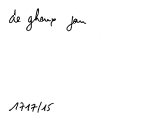 de gheux jan
1717/15